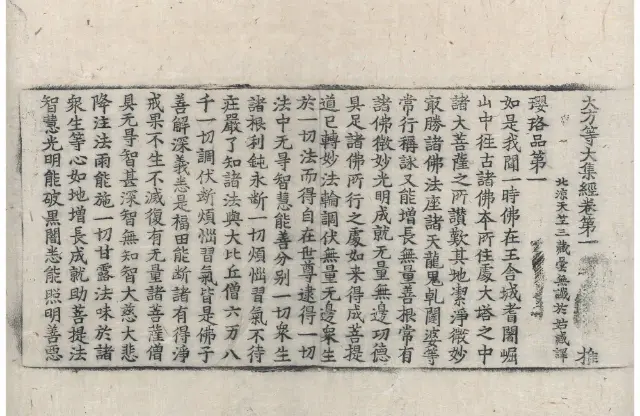 大方等大集經卷第一
推
北涼天竺三藏曇無讖於姑臧譯
瓔珞品第一
如是我聞一時佛在王舍城耆闍崛
山中往古諸佛本所住處大塔之中
諸大菩薩之所讚歎其地潔淨微妙
㝡勝諸佛法座諸天龍鬼乹闥婆等
常行稱詠又能增長無量善根常有
諸佛微妙光明成就无量無邊功德
具足諸佛所行之處如來得成菩提
道已轉妙法輪調伏無量无邊衆生
於一切法而得自在世尊逮得一切
法中无㝵智慧能善分别一切衆生
諸根利鈍永斷一切煩惱習氣不待
莊嚴了知諸法與大比丘僧六万八
千一切調伏斷煩惱習氣皆是佛子
善解深義悉是福田能斷諸有得淨
戒果不生不滅復有无量諸菩薩僧
具无㝵智甚深智無知智大慈大悲
降注法雨能施一切甘露法味於諸
衆生等心如地增長成就助菩提法
智慧光明能破黒闇悉能照明善惡